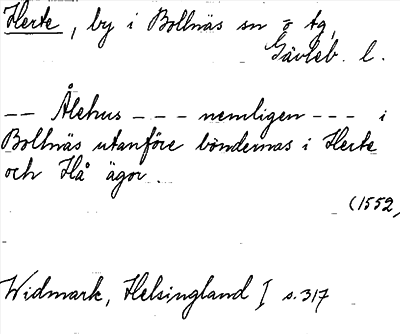 Herte, by i Bollnäs sn o tg,
Gävleb. l.
-- Ålehus --- nemligen --- i
Bollnäs utanföre böndernas i Herte
och Hå ägor.
(1552,
Widmark, Helsingland I s. 317